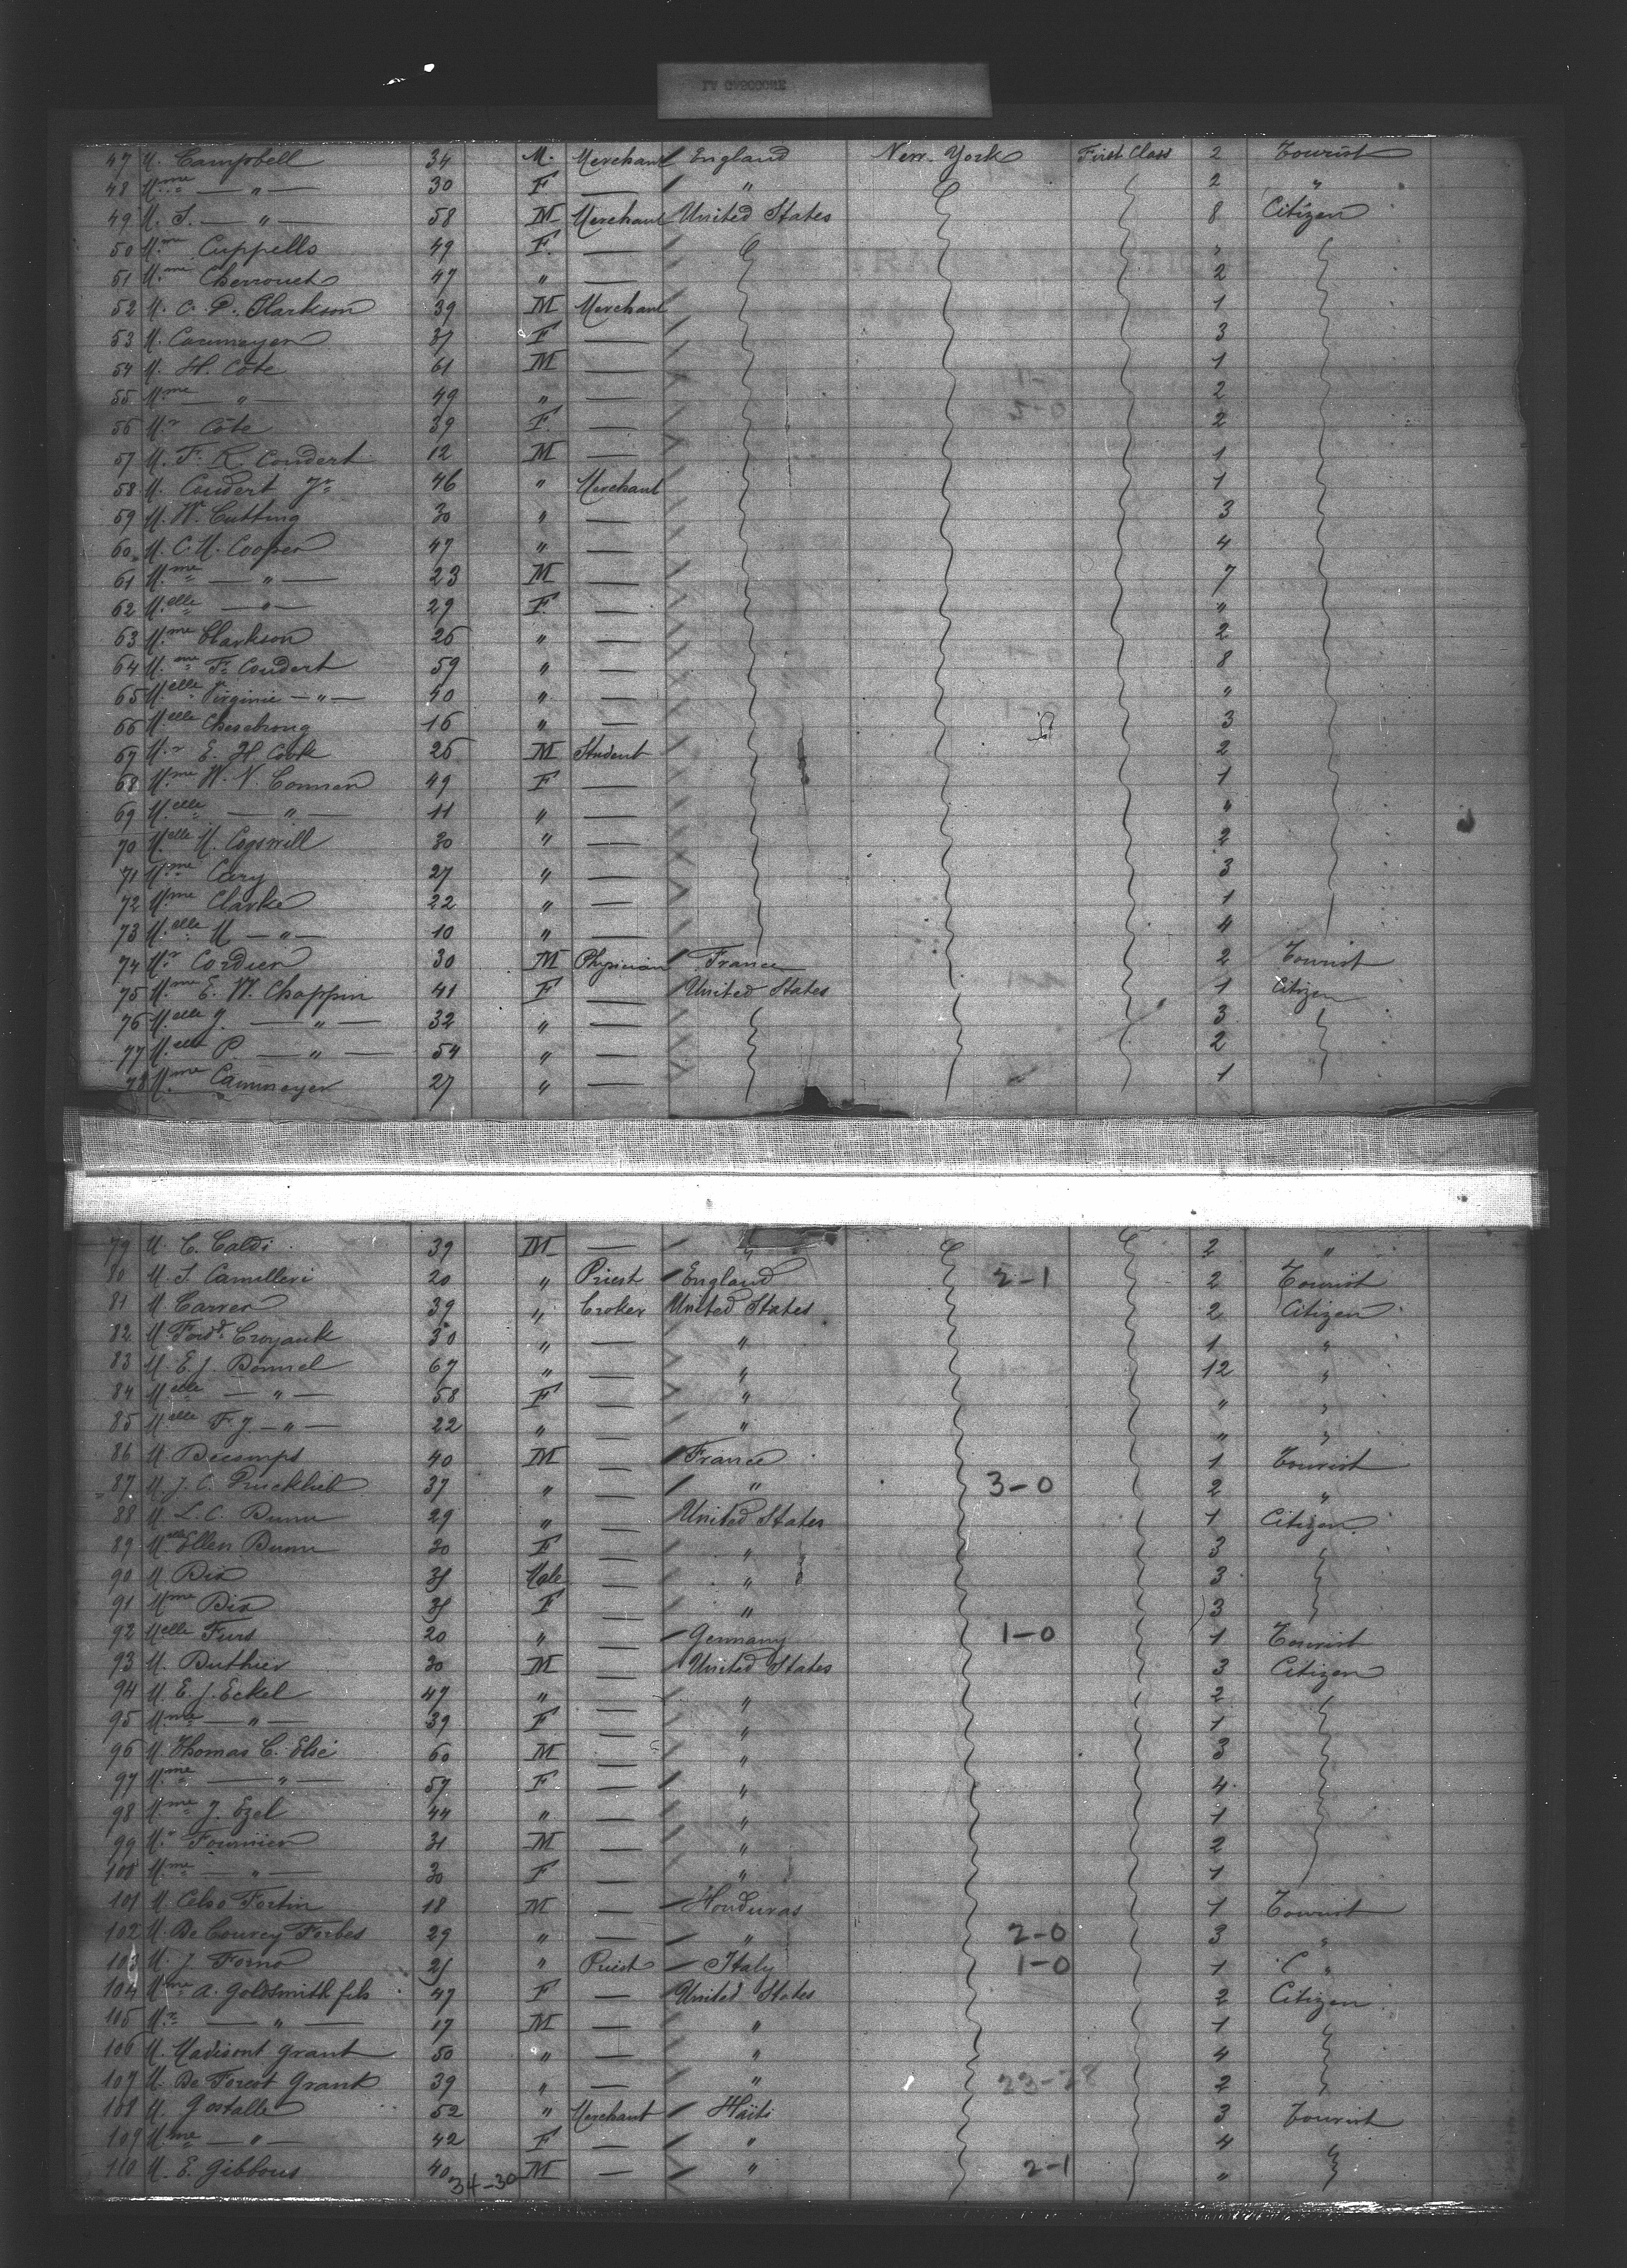 47 M. Campbell 34 M. Merchant England New-York First Class 2 Tourist
48 Mme — " — 30 F — " 2 "
49 M. S. — " — 58 M Merchant United States 8 Citizen
50 Mme Cuppells 49 F — "
51 Mme 47 " — 2
52 M. C. P. Clarkson 39 M Merchant 1
53 M. Cammeyer F — 3
54 M. H. Côte 61 M — 1
55 Mme — " — 49 " — 2
56 Mr Côte 39 F. — 2
57 M. F. R. Coudert 12 M — 1
58 M. Coudert Jr 46 " Merchant 1
59 M. W. Cutting 30 " — 3
60 M. C. M. Cooper 47 " — 4
61 Mme — " — 23 M — 7
62 Melle — " — 29 F. — "
63 Mme Clarkson 26 " — 2
64 Mme F. Coudert 59 " — 8
65 Melle Virginie — " — 40 " — "
66 Melle Chesebroug 16 " — 3
67 Mr E. H. Cook 26 M Student 2
68 Mme W. V. 49 F — 1
69 Melle — " — 11 " — "
70 Melle M. Cogswill 30 " — 2
71 Mme Cary 27 " — 3
72 Mme Clarke 22 " — 1
73 Melle M — " — 10 " — 4
74 Mr Cordier 30 M Physician France 2 Tourist
75 Mme E. W. Chappin 41 F — United States 1 Citizen
76 Melle J. — " — 32 " — 3
77 Melle P. — " — 54 " — 2
78 Mme Cammeyer 27 " — 1
79 M. C. Caldi 39 M — " 2 "
80 M. S. Camilleri 20 " Priest England 2-1 2 Tourist
81 M. Carrer 39 " Croker United States 2 Citizen
82 M. Ferdd. 30 " — " 1 "
83 M. E. J. 67 " — " 12 "
84 Melle — " — 58 F — " " "
85 Melle F. J. — " — 22 " — " " "
86 M. 40 M — France 1 Tourist
87 M. J. C. 37 " — " 3-0 2 "
88 M. L. C. 29 " — United States 1 Citizen
89 Melle Ellen 30 F — " 3
90 M. Dix Male — " 3
91 Mme Dix F — " 3
92 Melle Furs 20 " — Germany 1-0 1 Tourist
93 M. Duthier 30 M — United States 3 Citizen
94 M. E. J. Eckel 47 " — " 2
95 Mme — " — 39 F — " 1
96 M. Thomas C. Else 60 M — " 3
97 Mme — " — 57 F — " 4
98 Mme J. Ezel 44 " — " 1
99 Mr Fournier 31 M — " 2
100 Mme — " — 30 F — " 1
101 M. Celso Fortin 18 M — Honduras 1 Tourist
102 M. De Courcy Forbes 29 " — " 2-0 3 "
103 M. J. Forno " Priest Italy 1-0 1 "
104 Mme A. Goldsmith fils 47 F — United States 2 Citizen
105 Mr — " — 17 M — " 1
106 M. Madisont Grant 50 " — " 4
107 M. De Forest Grant 39 " — " 23-28 2
108 M. Gostalle 52 " Merchant Haïti 3 Tourist
109 Mme — " — 42 F — " 4
110 M. E. Gibbons 40 M — " 2-1 "
34-30